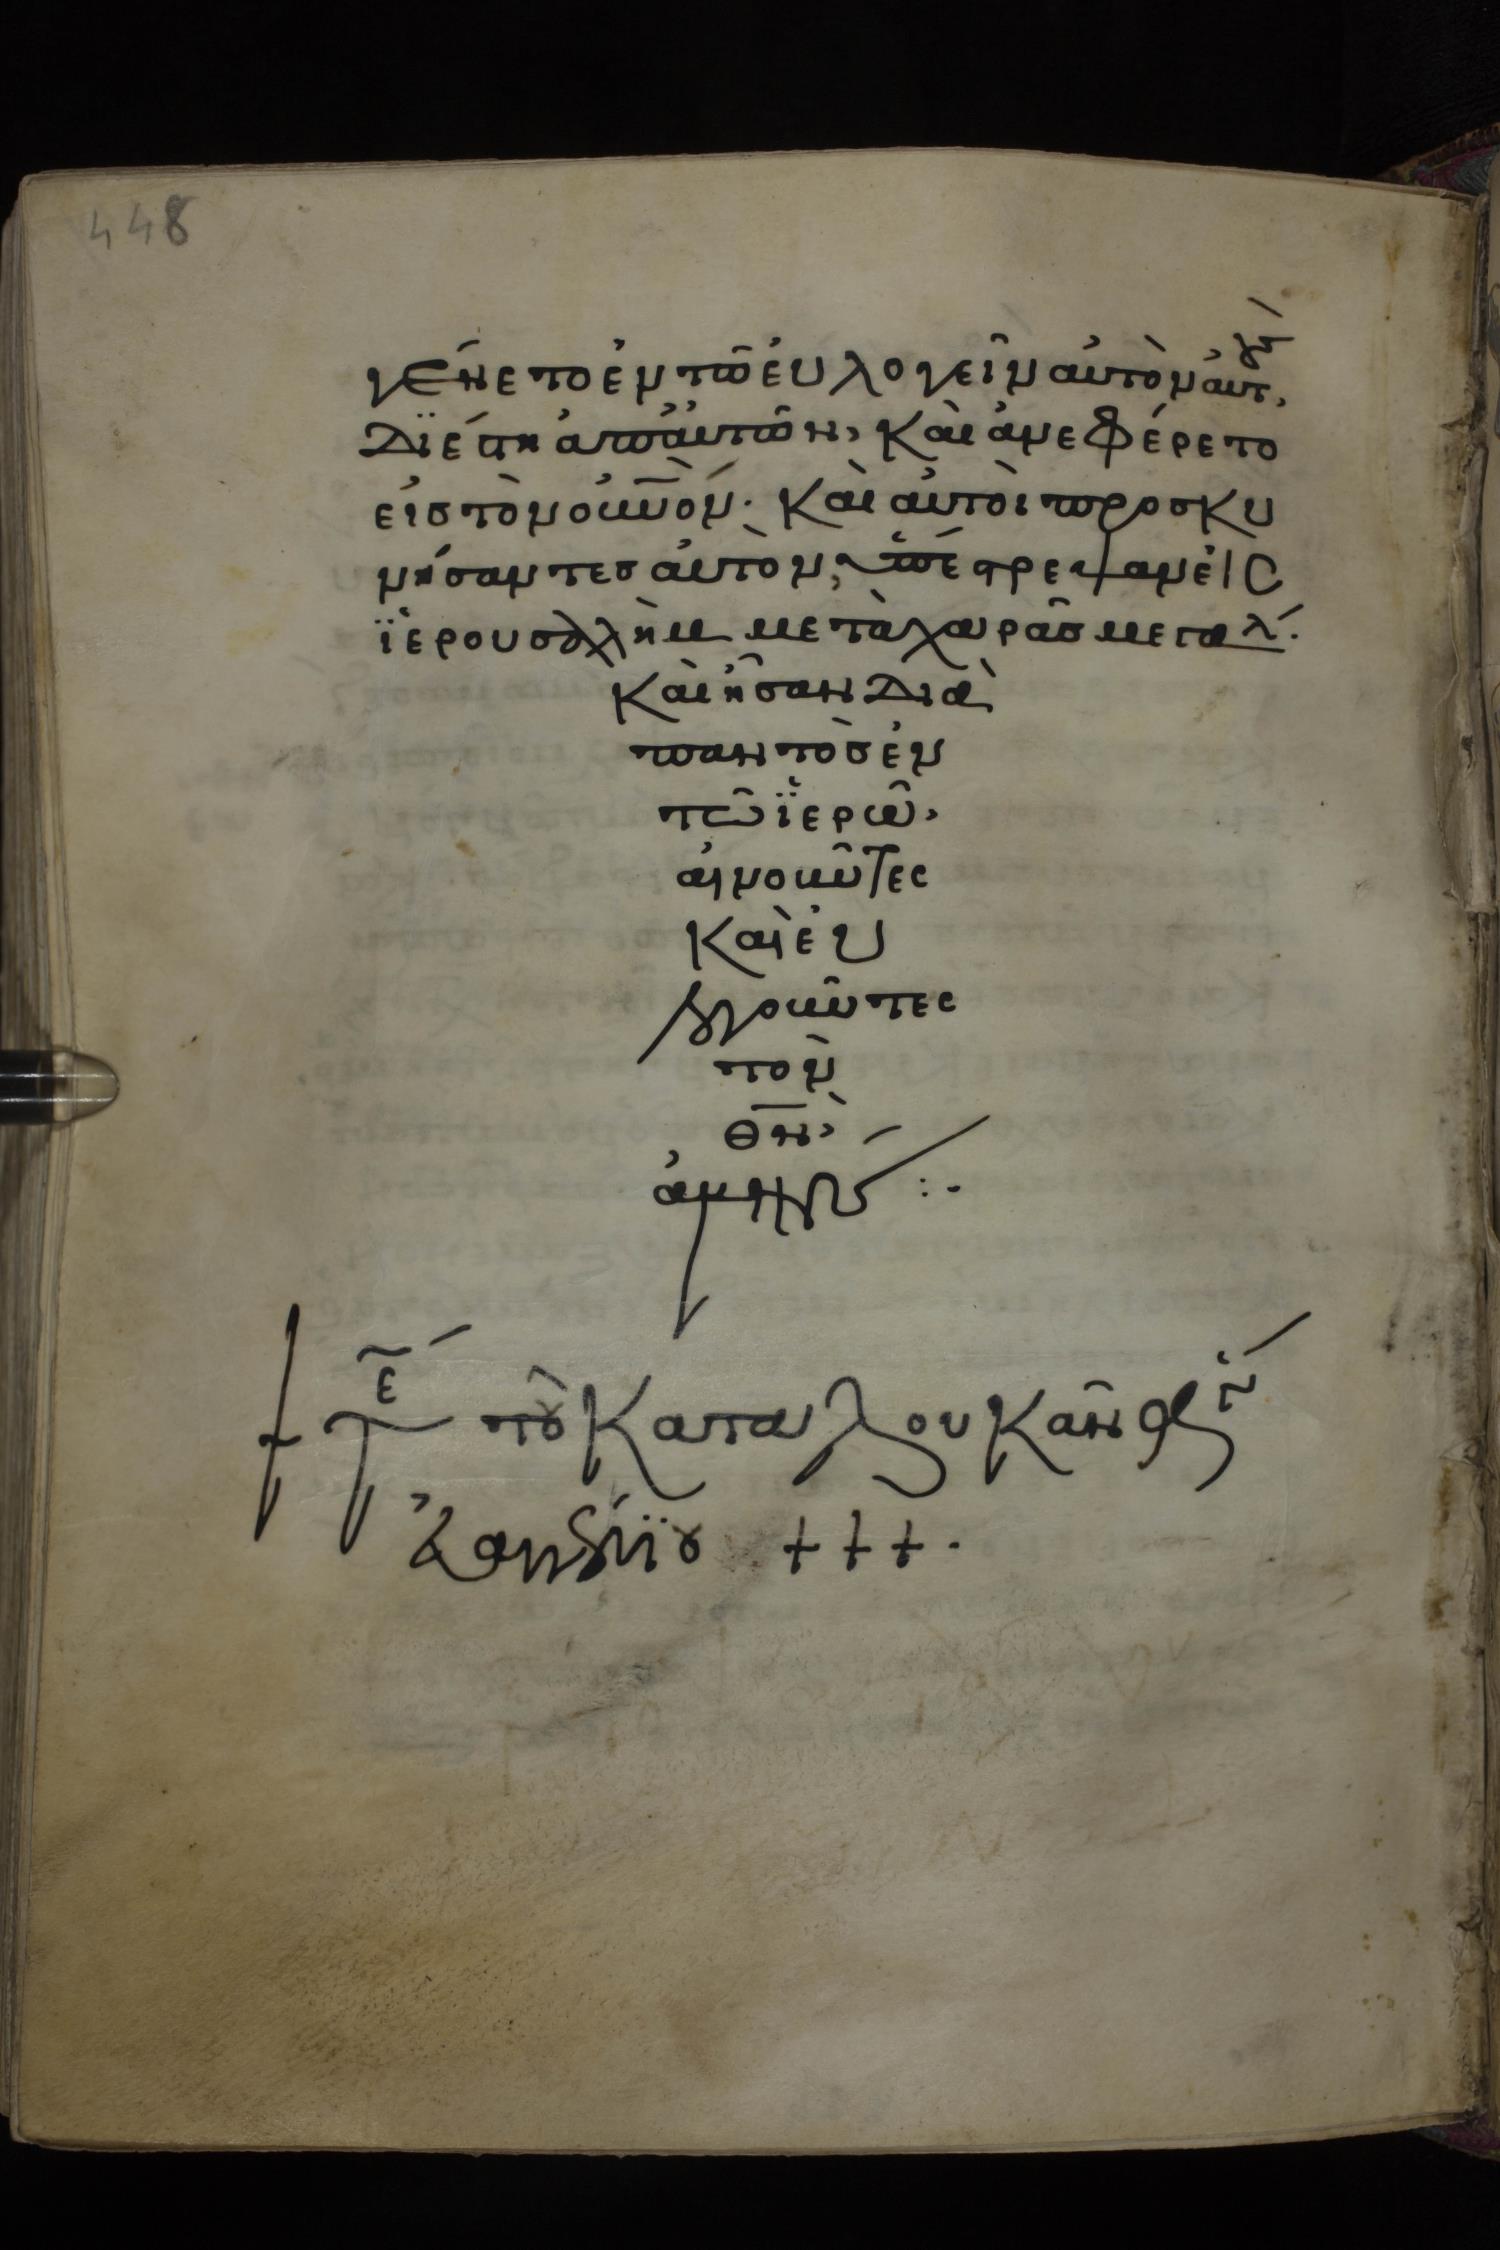 448
γένετο ἐν τῶ ἐυλογεῖν ἀυτὸν ἀυτ,
Διέστη ἀπ ἀυτῶν, Καὶ ἀνεφέρετο
εἰς τὸν ὀυν̅ον· Καὶ ἀυτοὶ προσκυ
νήσαντες ἀυτὸν, ὑπέστρεψαν εἰς
ϊερουσαλὴμ μετὰ χαρᾶς μεγαλ·
Καὶ ἦσαν Διὰ
παντὸς ἐν
τῶ ϊερῶ,
αἰνοῦντες
Καὶ ἐυ
λογοῦντες
τὸν
θ̅ν̅,
ἀμήν :-
τοῦ Κατα λουκᾶν
+++·